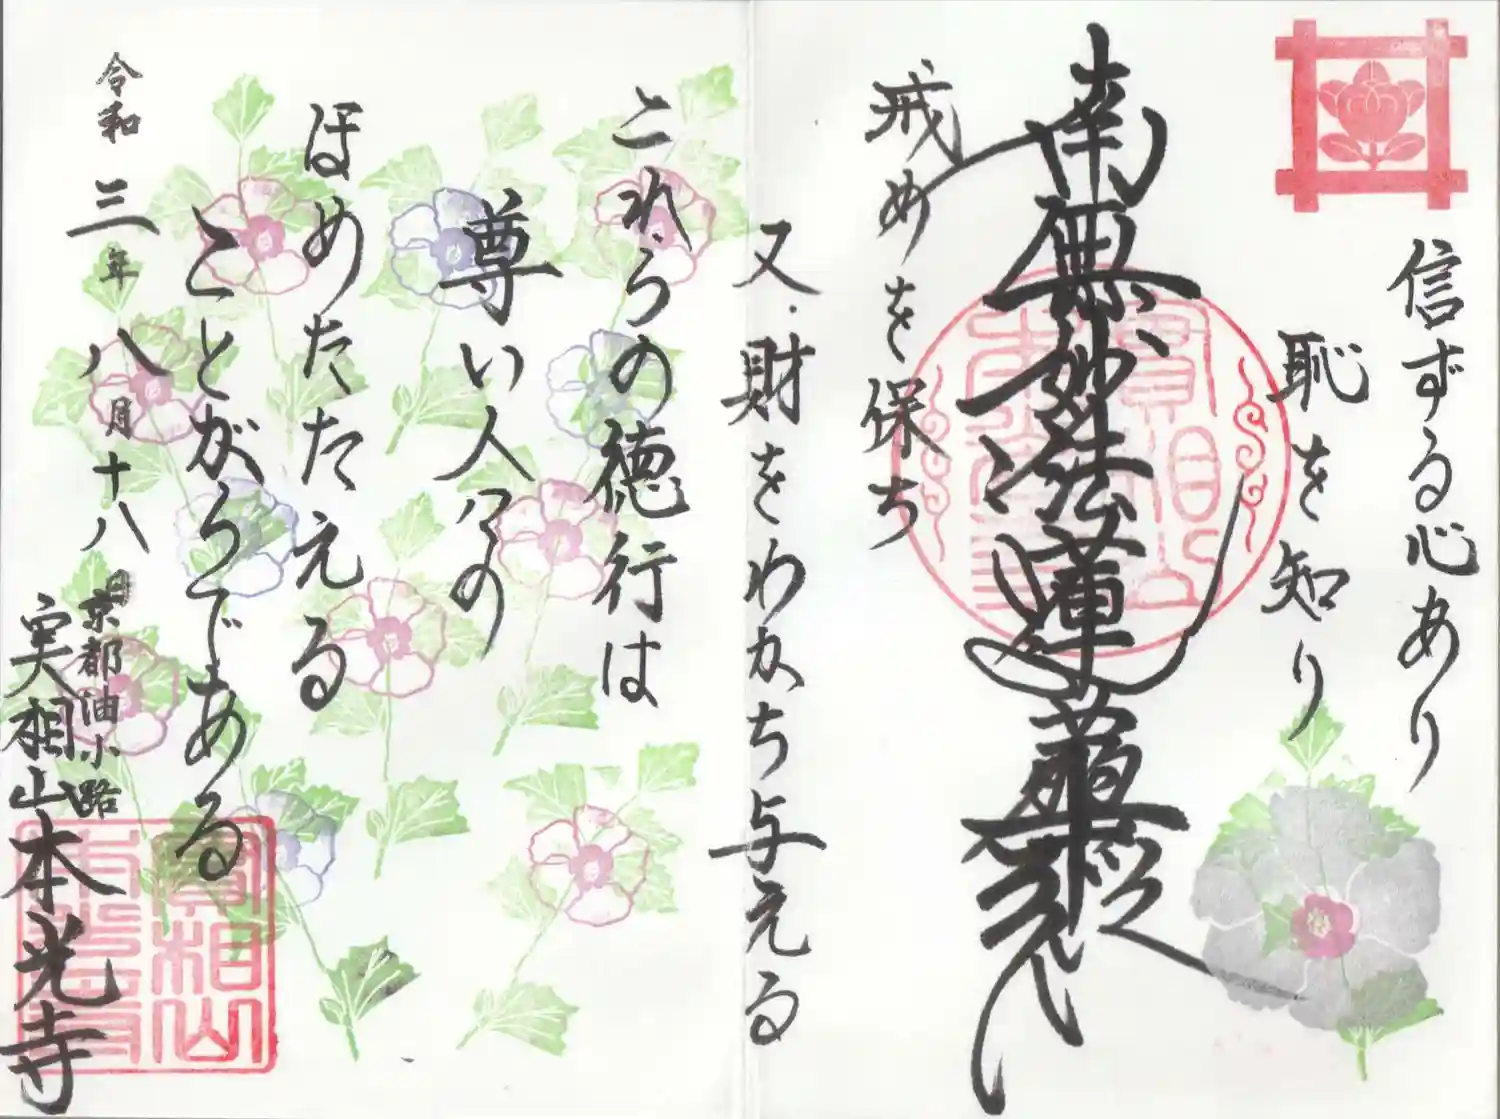 信ずる心あり
恥を知り
南無妙法蓮華経
戒めを保ち
又、財をわかち与える
これらの徳行は
尊い人々の
ほめたたえる
ことがらである
令和三年八月十八日
京都油小路
実相山本光寺
實相山
本光寺